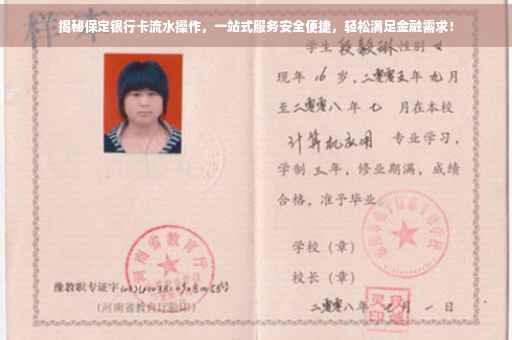 揭秘保定银行卡流水操作，一站式服务安全便捷，轻松满足金融需求！
样本
学生段毅琳性别女
现年16岁，二零零五年九月
至二零零八年七月在本校
计算机应用 专业学习，
学制三年，修业期满，成绩
合格，准予毕业。
学校（章）
校长（章）
二零零八年七月一日
河南省教育厅
豫教职专证字
(河南省教育厅验印)